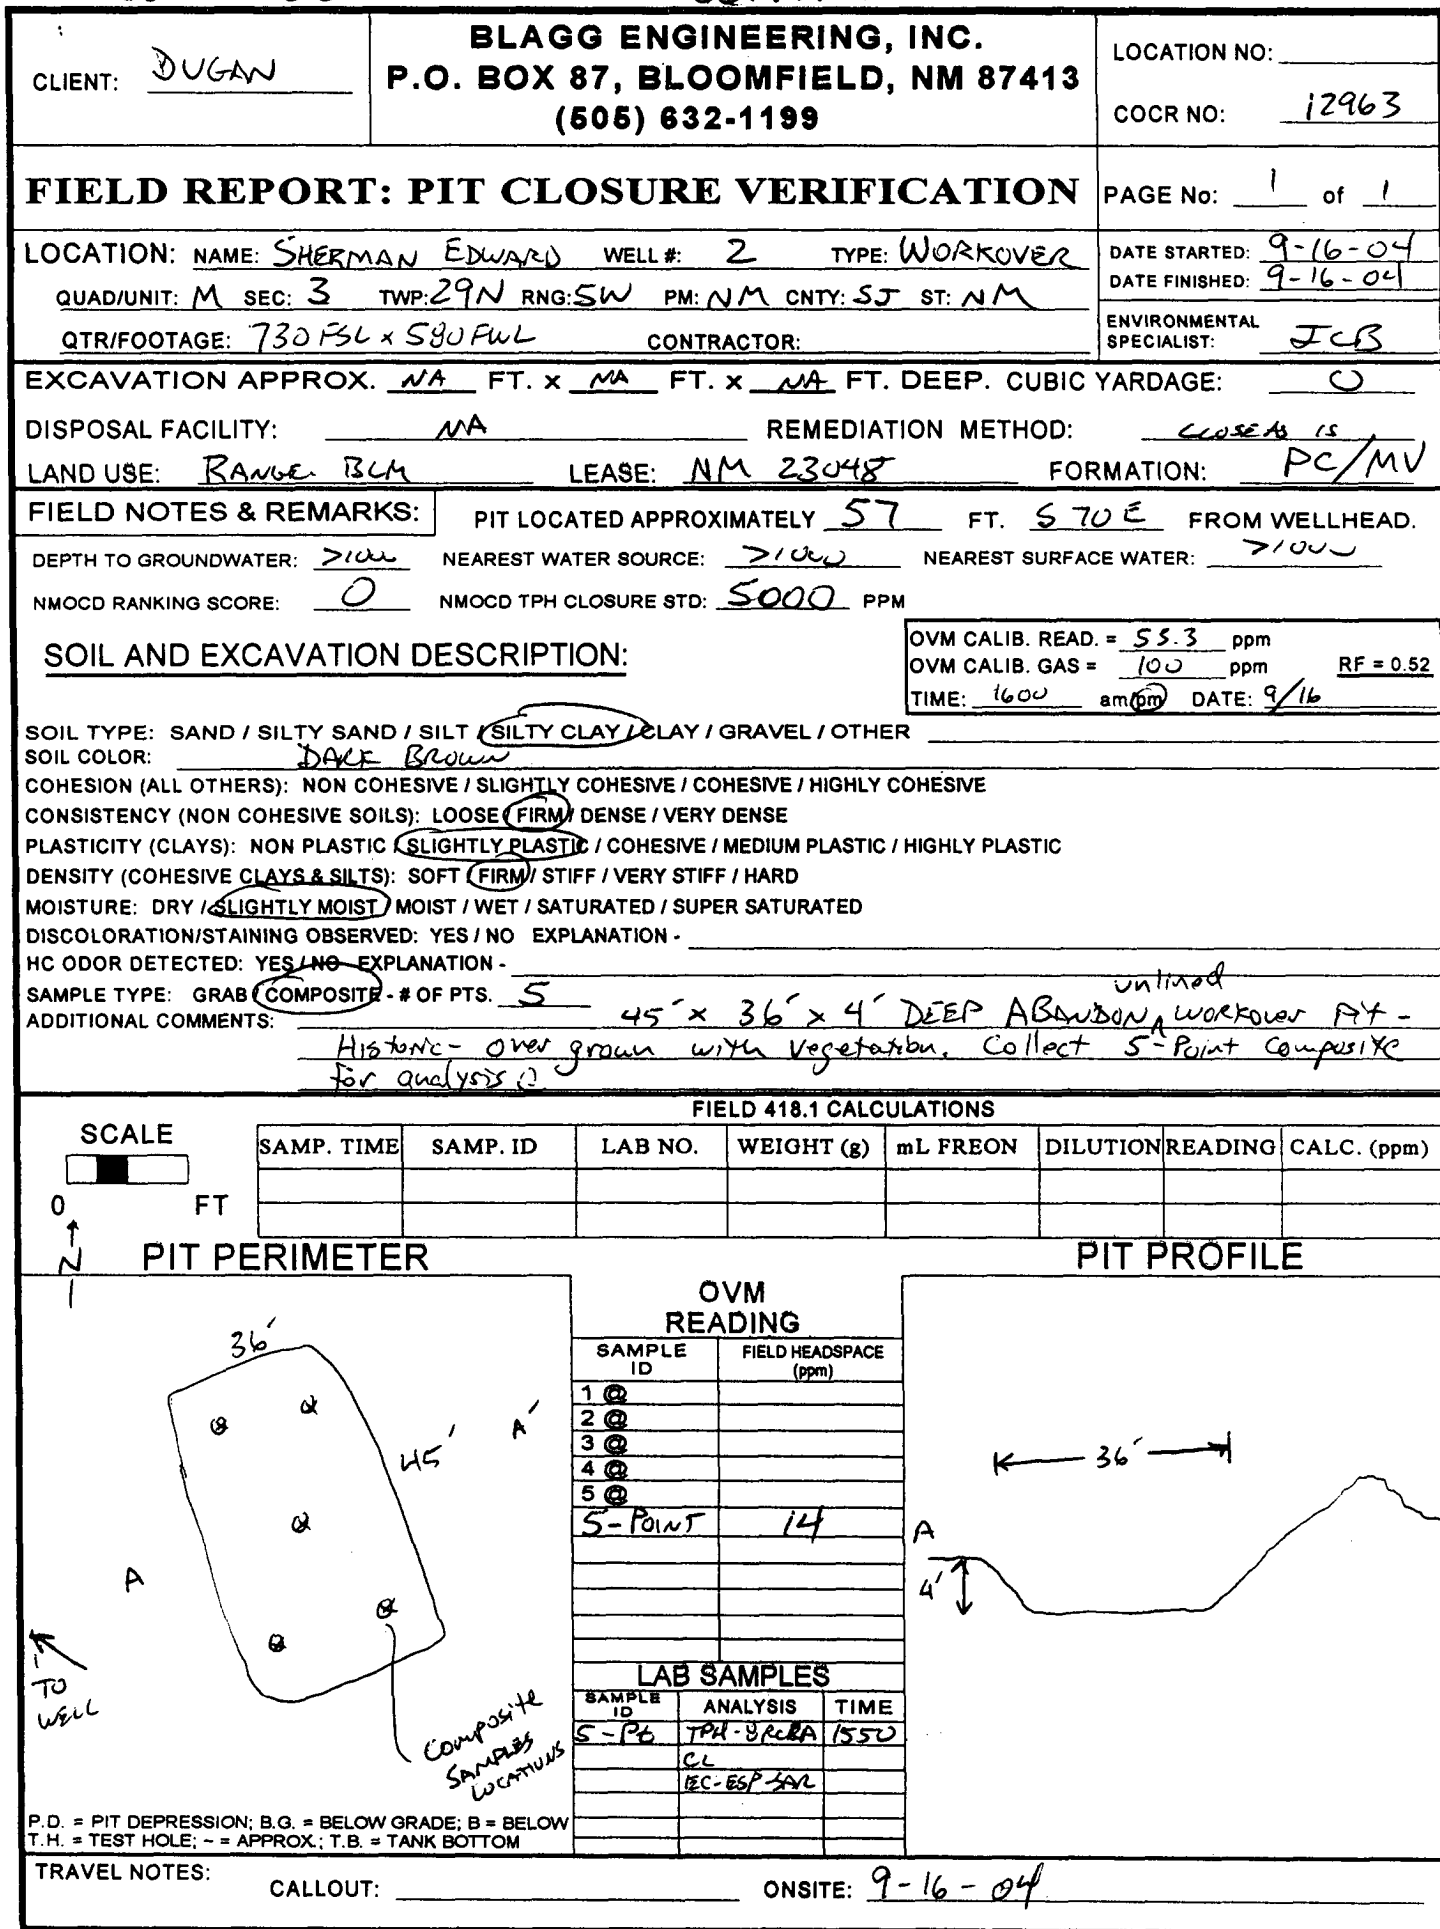 BLAGG ENGINEERING, INC.
CLIENT: DUGAN
P.O. BOX 87, BLOOMFIELD, NM 87413
(505) 632-1199
LOCATION NO:
COCR NO: 12963
FIELD REPORT: PIT CLOSURE VERIFICATION
PAGE No: 1 of 1
LOCATION: NAME: SHERMAN EDWARD WELL #: 2 TYPE: WORKOVER
DATE STARTED: 9-16-04
DATE FINISHED: 9-16-04
QUAD/UNIT: M SEC: 3 TWP: 29N RNG: 5W PM: NM CNTY: SJ ST: NM
QTR/FOOTAGE: 730 FSL x 580 FWL CONTRACTOR:
ENVIRONMENTAL SPECIALIST: JCB
EXCAVATION APPROX. NA FT. x NA FT. x NA FT. DEEP. CUBIC YARDAGE: 0
DISPOSAL FACILITY: NA REMEDIATION METHOD: CLOSE AS IS
LAND USE: RANGE BLM LEASE: NM 23048 FORMATION: PC/MV
FIELD NOTES & REMARKS: PIT LOCATED APPROXIMATELY 57 FT. S 70 E FROM WELLHEAD.
DEPTH TO GROUNDWATER: >100 NEAREST WATER SOURCE: >1000 NEAREST SURFACE WATER: >1000
NMOCD RANKING SCORE: 0 NMOCD TPH CLOSURE STD: 5000 PPM
SOIL AND EXCAVATION DESCRIPTION:
OVM CALIB. READ. = 53.3 ppm
OVM CALIB. GAS = 100 ppm RF = 0.52
TIME: 1600 am/pm DATE: 9/16
SOIL TYPE: SAND / SILTY SAND / SILT / SILTY CLAY / CLAY / GRAVEL / OTHER
SOIL COLOR: DARK BROWN
COHESION (ALL OTHERS): NON COHESIVE / SLIGHTLY COHESIVE / COHESIVE / HIGHLY COHESIVE
CONSISTENCY (NON COHESIVE SOILS): LOOSE / FIRM / DENSE / VERY DENSE
PLASTICITY (CLAYS): NON PLASTIC / SLIGHTLY PLASTIC / COHESIVE / MEDIUM PLASTIC / HIGHLY PLASTIC
DENSITY (COHESIVE CLAYS & SILTS): SOFT / FIRM / STIFF / VERY STIFF / HARD
MOISTURE: DRY / SLIGHTLY MOIST / MOIST / WET / SATURATED / SUPER SATURATED
DISCOLORATION/STAINING OBSERVED: YES / NO EXPLANATION -
HC ODOR DETECTED: YES / NO EXPLANATION -
SAMPLE TYPE: GRAB / COMPOSITE - # OF PTS. 5
ADDITIONAL COMMENTS: 45' x 36' x 4' DEEP ABANDON unlined workover Pit -
Historic - over grown with vegetation. Collect 5-Point Composite
for analysis.
FIELD 418.1 CALCULATIONS
SCALE
0 FT
SAMP. TIME SAMP. ID LAB NO. WEIGHT (g) mL FREON DILUTION READING CALC. (ppm)
N
PIT PERIMETER
36'
45'
A'
A
TO WELL
Composite
SAMPLES
LOCATIONS
P.D. = PIT DEPRESSION; B.G. = BELOW GRADE; B = BELOW
T.H. = TEST HOLE; ~ = APPROX.; T.B. = TANK BOTTOM
OVM
READING
SAMPLE ID FIELD HEADSPACE (ppm)
1 @
2 @
3 @
4 @
5 @
5-POINT 14
LAB SAMPLES
SAMPLE ID ANALYSIS TIME
5-Pt TPH-8RCRA 1550
CL
EC-ESP-SAR
PIT PROFILE
36'
A
4'
TRAVEL NOTES: CALLOUT: ONSITE: 9-16-04